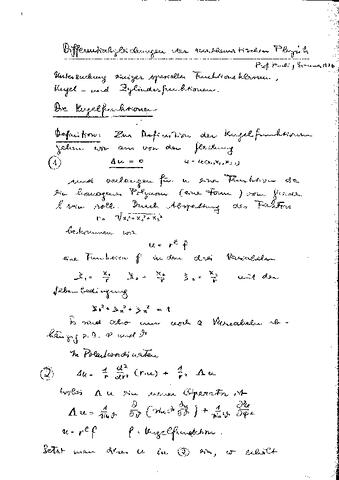 Differentialgleichungen der mathematischen Physik
Prof. Pauli, Sommer
Untersuchung einiger spezieller Funktionsklassen,
Kugel- und Zylinderfunktionen.
Die Kugelfunktionen
Definition: Zur Definition der Kugelfunktionen
gehen wir aus von der
① Δu = 0 u = u(x₁, x₂, x₃)
und verlangen für u eine Funktion die
ein homogenes Polynom (eine Form) vom Grade
l sein soll. Durch Abspaltung des Faktors
r = √x₁²+x₂²+x₃²
bekommen wir
u = rˡ f
eine Funktion f in den drei Variabeln
ξ₁ = x₁/r ξ₂ = x₂/r ξ₃ = x₃/r mit der
Nebenbedingung
ξ₁² + ξ₂² + ξ₃² = 1
Es sind also nur noch 2 Variabeln ab-
hängig z.B. φ und ϑ
In Polarkoordinaten
② Δu = 1/r d²/dr² (r·u) + 1/r² Λu
wobei Λu ein neuer Operator ist
Λu = 1/sinϑ ∂/∂ϑ (sinϑ ∂u/∂ϑ) + 1/sin²ϑ ∂²u/∂φ²
u = rˡ f f = Kugelfunktion.
Setzt man dieses u in ② ein, so erhält